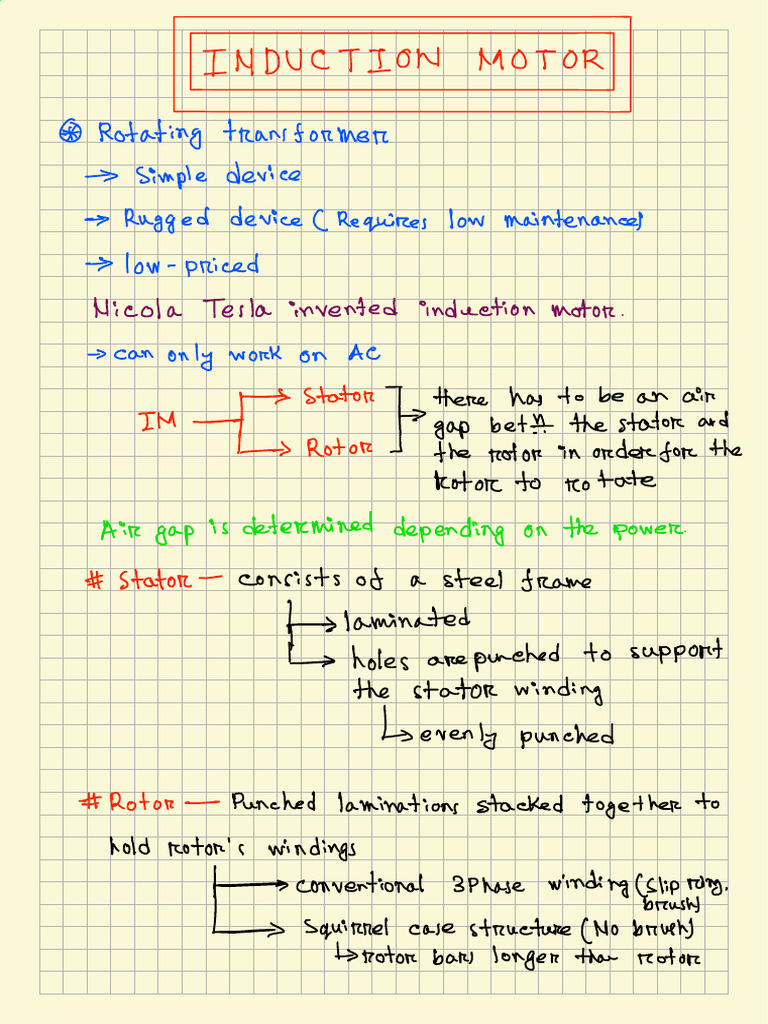 INDUCTION MOTOR
Rotating transformer
→ Simple device
→ Rugged device ( Requires low maintenance)
→ low-priced
Nicola Tesla invented induction motor.
→ can only work on AC
IM → Stator
→ Rotor
→ there has to be an air
gap betn the stator and
the rotor in order for the
rotor to rotate
Air gap is determined depending on the power.
# Stator — consists of a steel frame
→ laminated
→ holes are punched to support
the stator winding
→ evenly punched
# Rotor — Punched laminations stacked together to
hold rotor's windings
→ conventional 3 Phase winding (slip ring,
brush)
→ Squirrel case structure (No brush)
→ rotor bars longer than rotor